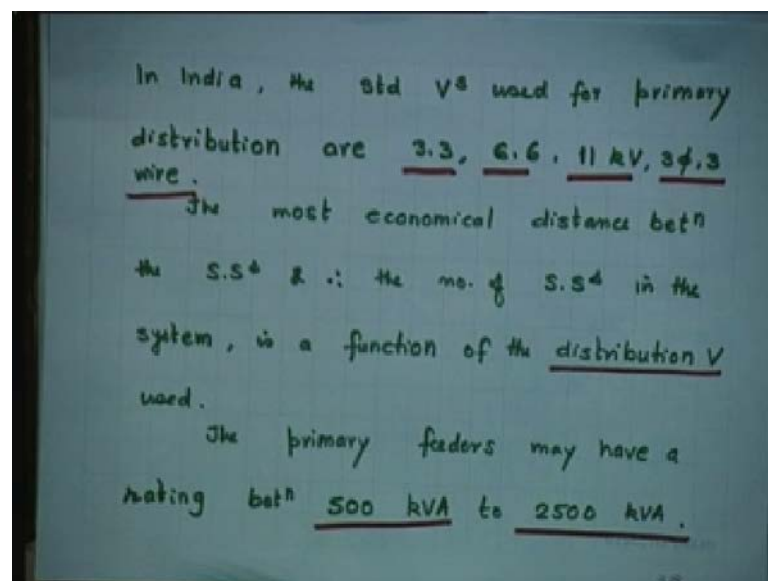 In India, the std Vs used for primary
distribution are 3.3, 6.6, 11 kV, 3ϕ, 3
wire.
The most economical distance betn
the S.Ss & ∴ the no. of S.Ss in the
system, is a function of the distribution V
used.
The primary feeders may have a
rating betn 500 kVA to 2500 kVA.